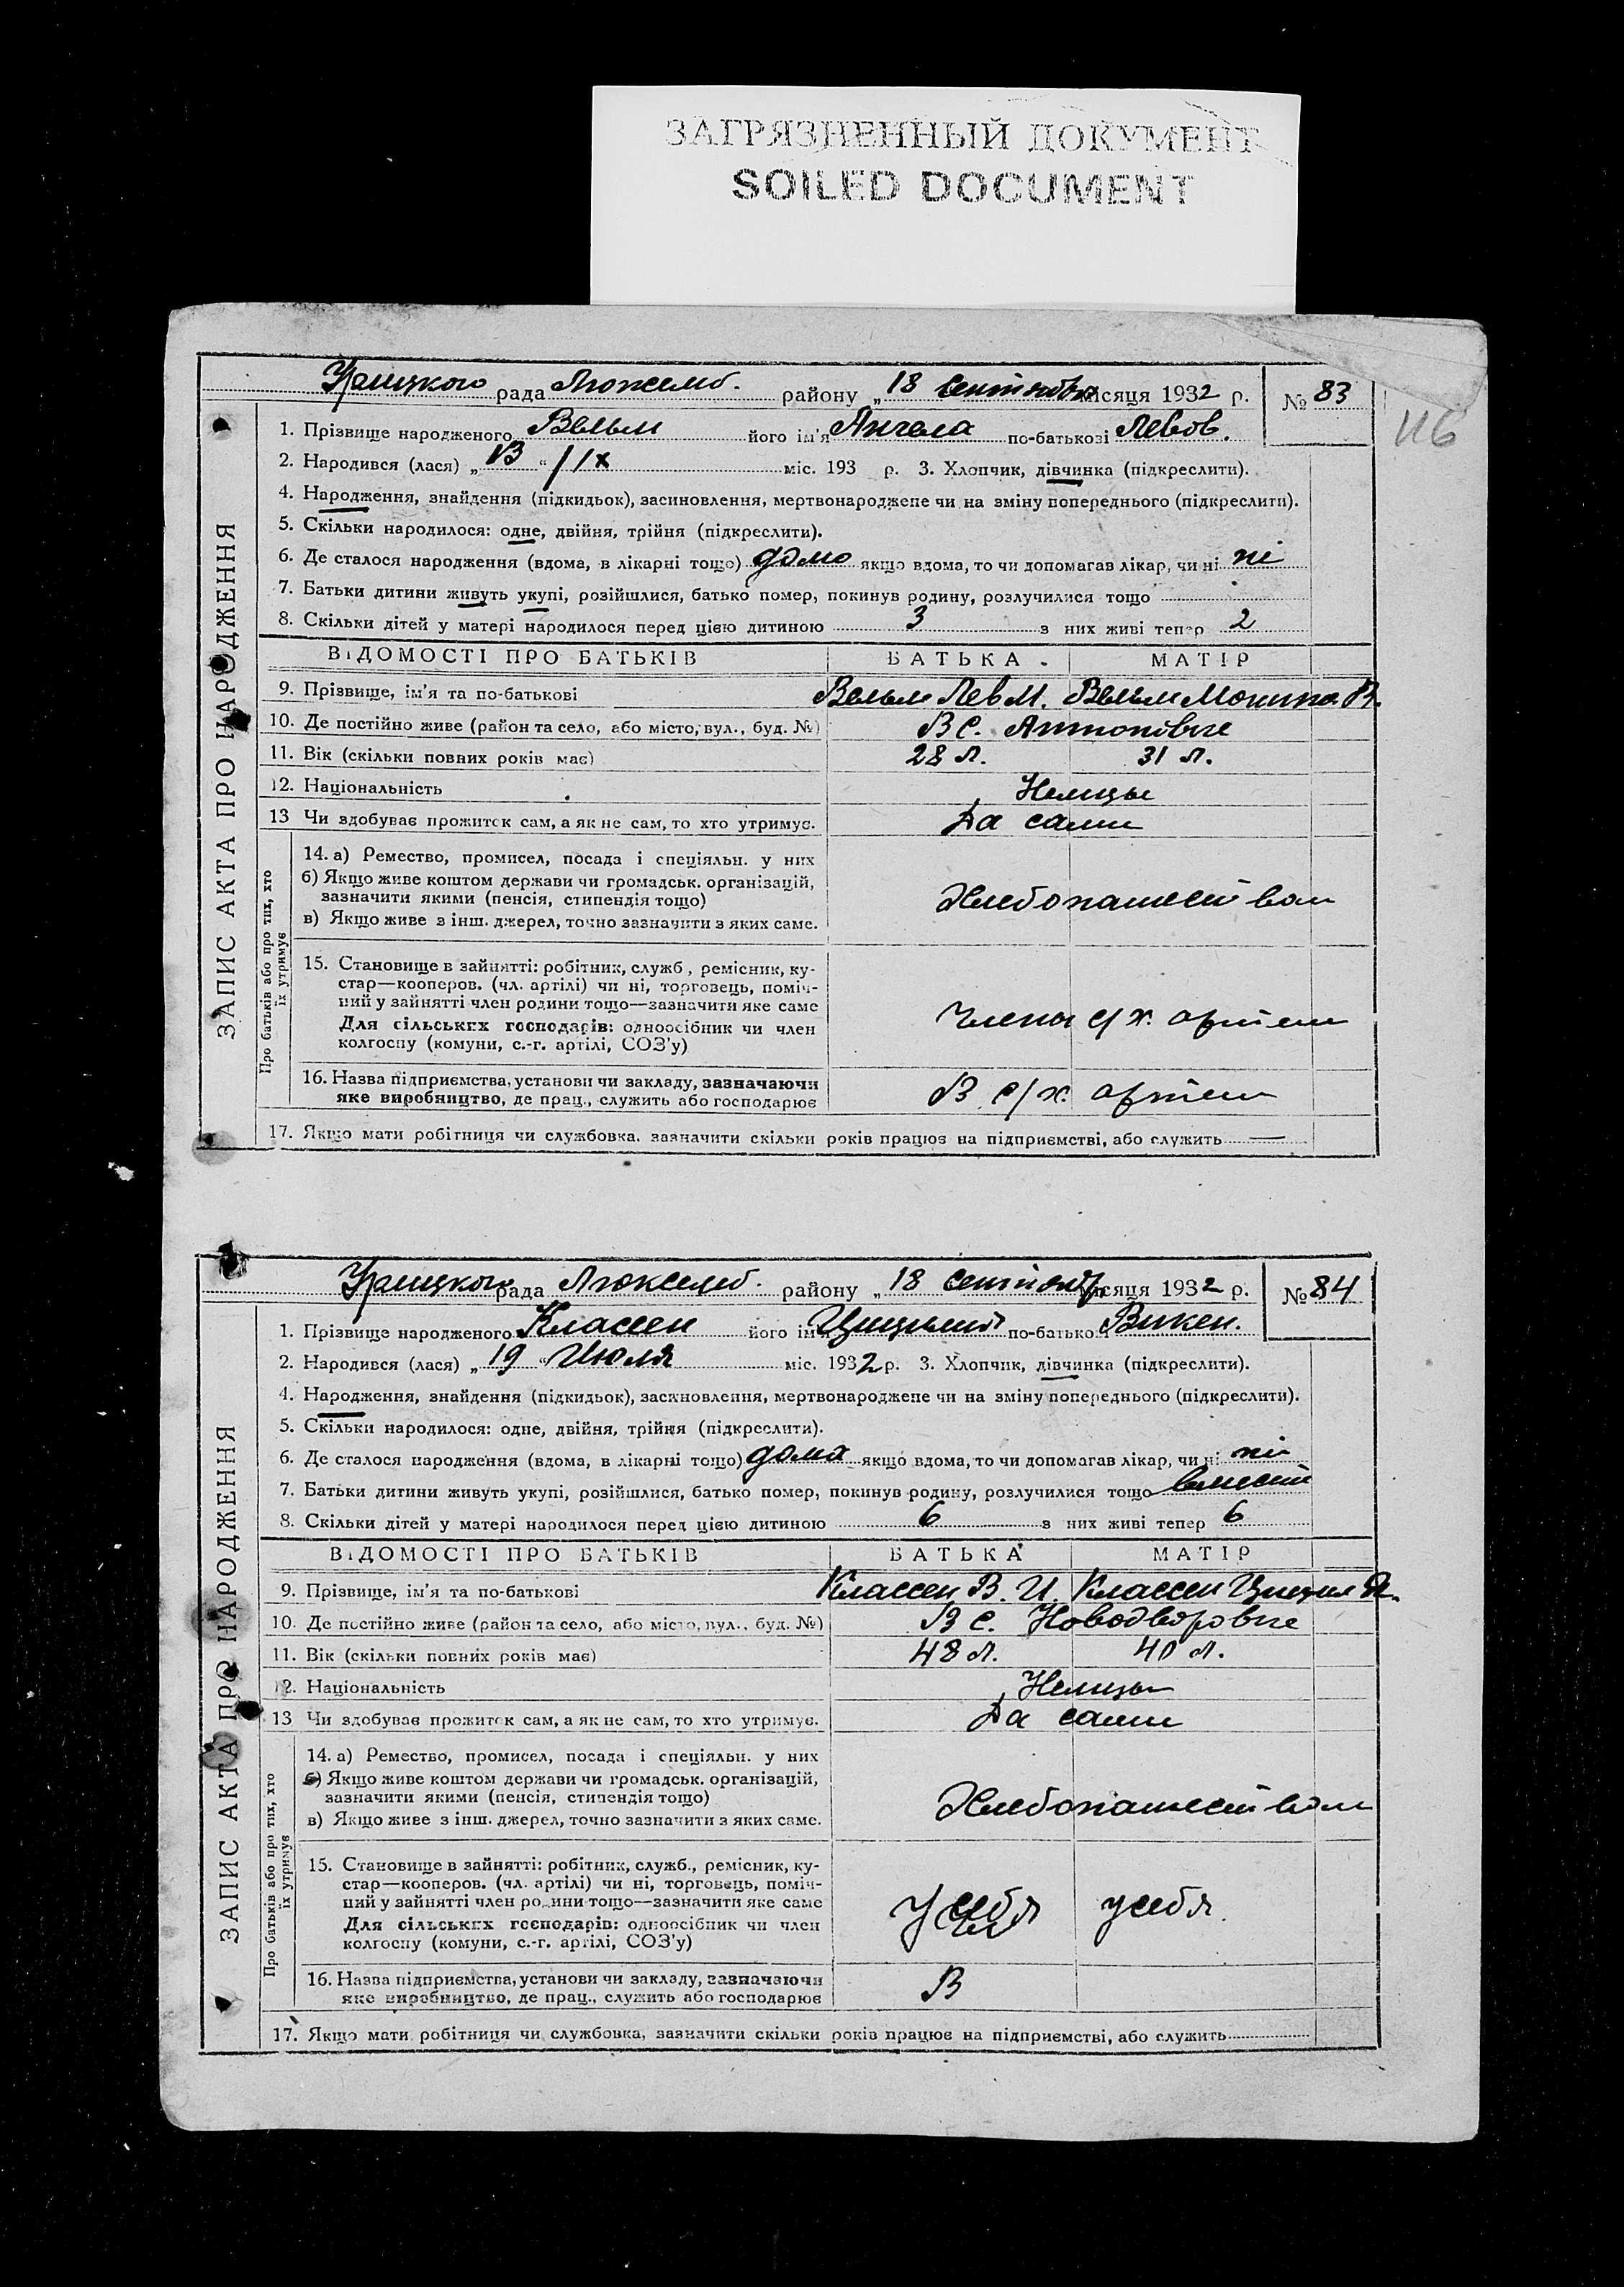 ЗАГРЯЗНЕННЫЙ ДОКУМЕНТ
SOILED DOCUMENT
116
ЗАПИС АКТА ПРО НАРОДЖЕННЯ
Урицкого рада Люксемб. району „18 Сентября місяця 1932 р. № 83
1. Прізвище народженого Вельм його ім'я Ангела по-батькові Левов.
2. Народився (лася) „ 13 “ / IX міс. 193 р. 3. Хлопчик, дівчинка (підкреслити).
4. Народження, знайдення (підкидьок), засиновлення, мертвонароджене чи на зміну попереднього (підкреслити).
5. Скільки народилося: одне, двійня, трійня (підкреслити).
6. Де сталося народження (вдома, в лікарні тощо) дома якщо вдома, то чи допомагав лікар, чи ні ні
7. Батьки дитини живуть укупі, розійшлися, батько помер, покинув родину, розлучилися тощо
8. Скільки дітей у матері народилося перед цією дитиною 3 з них живі тепер 2
ВІДОМОСТІ ПРО БАТЬКІВ БАТЬКА МАТІР
9. Прізвище, ім'я та по-батькові Вельм Лев М. Вельм Моника В.
10. Де постійно живе (район та село, або місто, вул., буд. №) В с. Антоновке
11. Вік (скільки повних років має) 28 л. 31 л.
12. Національність Немцы
13 Чи здобуває прожиток сам, а як не сам, то хто утримує. Да сами
Про батьків або про тих, хто їх утримує
14. а) Ремество, промисел, посада і спеціяльн. у них
б) Якщо живе коштом держави чи громадськ. організацій,
зазначити якими (пенсія, стипендія тощо) Хлебопашеством
в) Якщо живе з інш. джерел, точно зазначити з яких саме.
15. Становище в зайнятті: робітник, служб., ремісник, ку-
стар—кооперов. (чл. артілі) чи ні, торговець, поміч-
ний у зайнятті член родини тощо—зазначити яке саме
Для сільських господарів: одноосібник чи член Члены с/х. артели
колгоспу (комуни, с.-г. артілі, СОЗ'у)
16. Назва підприємства, установи чи закладу, зазначаючи
яке виробництво, де прац., служить або господарює В с/х. артели
17. Якщо мати робітниця чи службовка, зазначити скільки років працює на підприємстві, або служить —
ЗАПИС АКТА ПРО НАРОДЖЕННЯ
Урицкого рада Люксемб. району „18 Сентябр місяця 1932 р. № 84
1. Прізвище народженого Классен його ім по-батько Викен.
2. Народився (лася) „ 19 “ Июля міс. 1932 р. 3. Хлопчик, дівчинка (підкреслити).
4. Народження, знайдення (підкидьок), засиновлення, мертвонароджене чи на зміну попереднього (підкреслити).
5. Скільки народилося: одне, двійня, трійня (підкреслити).
6. Де сталося народження (вдома, в лікарні тощо) дома якщо вдома, то чи допомагав лікар, чи ні ні
7. Батьки дитини живуть укупі, розійшлися, батько помер, покинув родину, розлучилися тощо вместе
8. Скільки дітей у матері народилося перед цією дитиною 6 з них живі тепер 6
ВІДОМОСТІ ПРО БАТЬКІВ БАТЬКА МАТІР
9. Прізвище, ім'я та по-батькові Классен В. И. Классен
10. Де постійно живе (район та село, або місто, вул., буд. №) В с. Новодворовке
11. Вік (скільки повних років має) 48 л. 40 л.
12. Національність Немцы
13 Чи здобуває прожиток сам, а як не сам, то хто утримує. Да сами
Про батьків або про тих, хто їх утримує
14. а) Ремество, промисел, посада і спеціяльн. у них
б) Якщо живе коштом держави чи громадськ. організацій,
зазначити якими (пенсія, стипендія тощо) Хлебопашеством
в) Якщо живе з інш. джерел, точно зазначити з яких саме.
15. Становище в зайнятті: робітник, служб., ремісник, ку-
стар—кооперов. (чл. артілі) чи ні, торговець, поміч-
ний у зайнятті член родини тощо—зазначити яке саме у себя у себя
Для сільських господарів: одноосібник чи член
колгоспу (комуни, с.-г. артілі, СОЗ'у)
16. Назва підприємства, установи чи закладу, зазначаючи
яке виробництво, де прац., служить або господарює В
17. Якщо мати робітниця чи службовка, зазначити скільки років працює на підприємстві, або служить